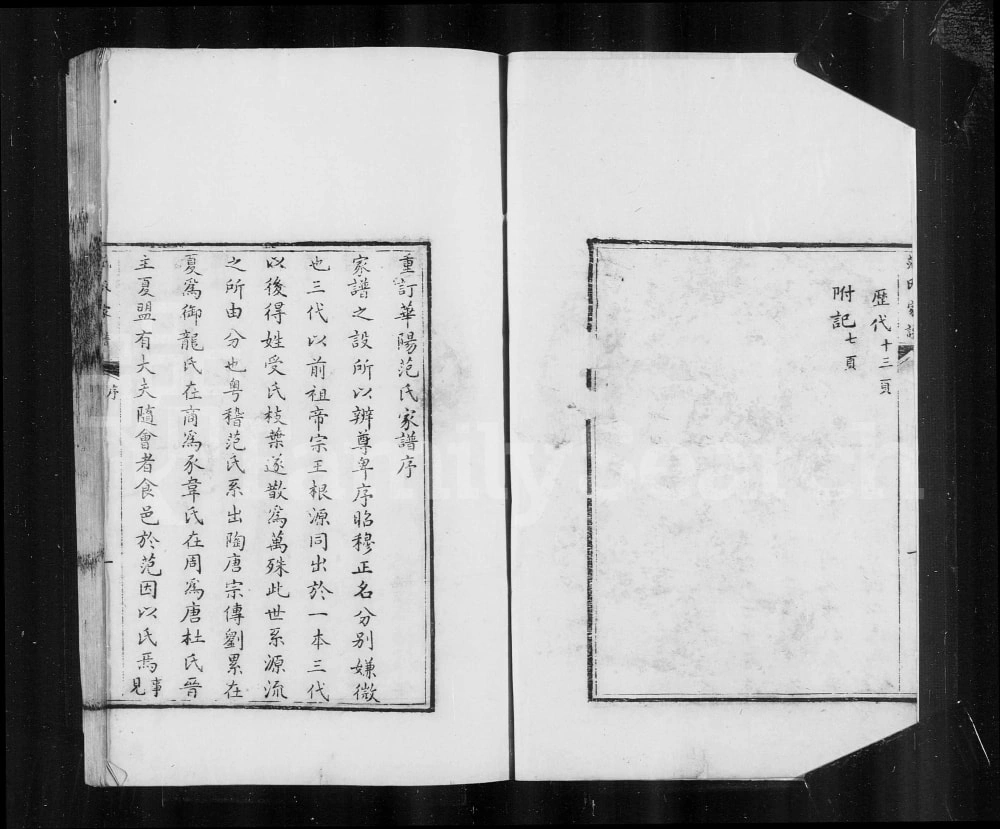 范氏家譜
歷代十三頁
附記七頁
重訂華陽范氏家譜序
家譜之設所以辨尊卑序昭穆正名分别嫌微
也三代以前祖帝宗王根源同出於一本三代
以後得姓受氏枝葉遂散為萬殊此世系源流
之所由分也粤稽范氏系出陶唐宗傳劉累在
夏為御龍氏在商為豕韋氏在周為唐杜氏晉
主夏盟有大夫隨會者食邑於范因以氏焉事見
序
一